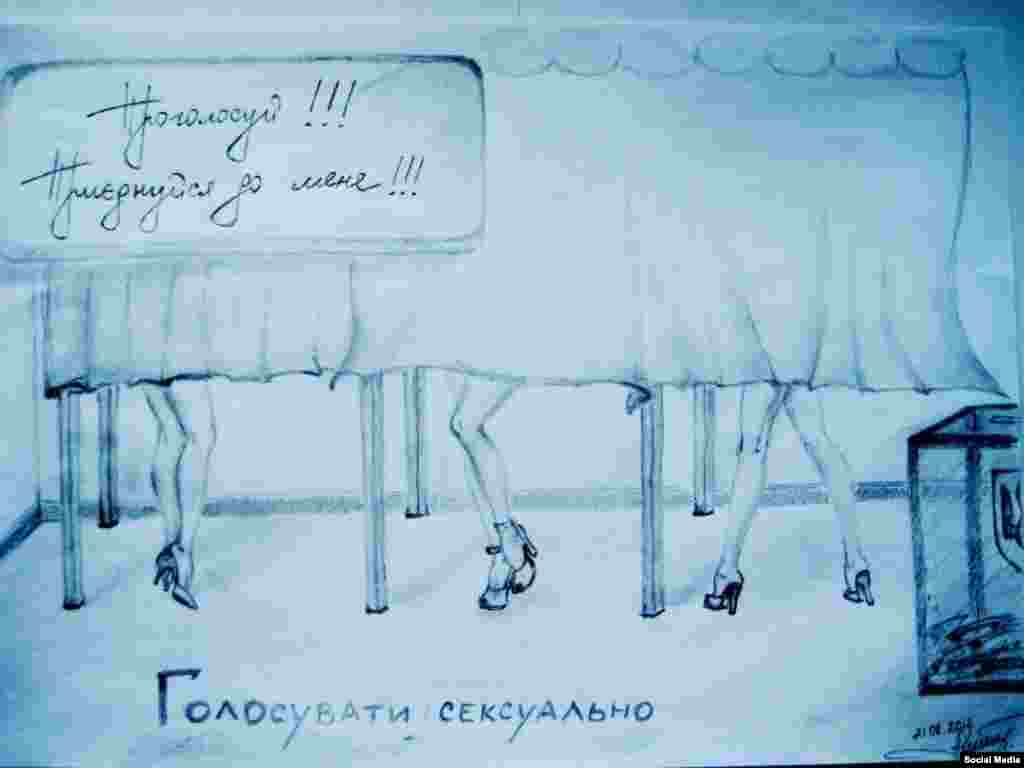 Проголосуй !!!
Приєднуйся до мене !!!
Голосувати сексуально
Social Media